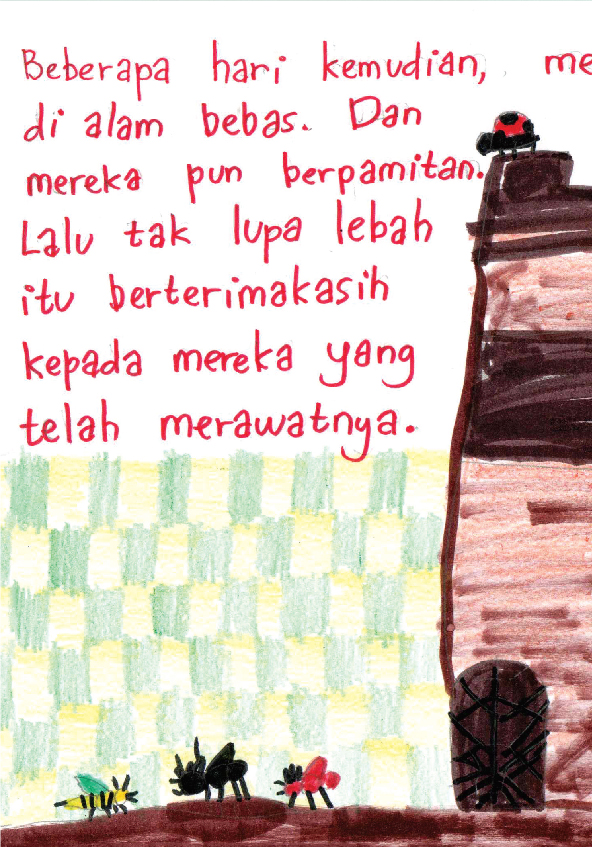 Beberapa hari kemudian, me
di alam bebas. Dan
mereka pun berpamitan.
Lalu tak lupa lebah
itu berterimakasih
kepada mereka yang
telah merawatnya.